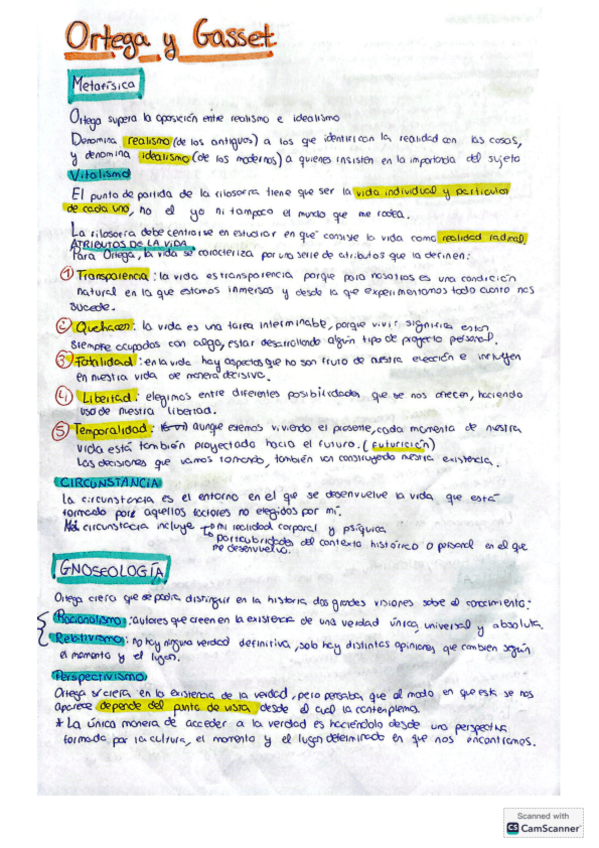 Ortega y Gasset
Metafísica
Ortega supera la oposición entre realismo e idealismo
Denomina realismo (de los antiguos) a los que identifican la realidad con las cosas,
y denomina idealismo (de los modernos) a quienes insisten en la importancia del sujeto
Vitalismo
El punto de partida de la filosofía tiene que ser la vida individual y particular
de cada uno, no el yo ni tampoco el mundo que me rodea.
La filosofía debe centrarse en estudiar en qué consiste la vida como realidad radical.
ATRIBUTOS DE LA VIDA
Para Ortega, la vida se caracteriza por una serie de atributos que la definen:
① Transparencia: la vida es transparencia porque para nosotros es una condición
natural en la que estamos inmersos y desde la que experimentamos todo cuanto nos
sucede.
② Quehacer: la vida es una tarea interminable, porque vivir significa estar
siempre ocupados con algo, estar desarrollando algún tipo de proyecto personal.
③ Fatalidad: en la vida hay aspectos que no son fruto de nuestra elección e influyen
en nuestra vida de manera decisiva.
④ Libertad: elegimos entre diferentes posibilidades que se nos ofrecen, haciendo
uso de nuestra libertad.
⑤ Temporalidad: aunque estemos viviendo el presente, cada momento de nuestra
vida está también proyectado hacia el futuro. (Futurición)
Las decisiones que vamos tomando, también van construyendo nuestra existencia.
CIRCUNSTANCIA
La circunstancia es el entorno en el que se desenvuelve la vida, que está
formado por aquellos factores no elegidos por mí.
Mi circunstacia incluye → mi realidad corporal y psíquica
→ particularidades del contexto histórico o personal en el que
me desenvuelvo.
GNOSEOLOGÍA
Ortega creía que se podía distinguir en la historia dos grandes visiones sobre el conocimiento:
Racionalismo: autores que creen en la existencia de una verdad única, universal y absoluta.
Relativismo: no hay ninguna verdad definitiva, solo hay distintas opiniones que cambien según
el momento y el lugar.
Perspectivismo
Ortega sí creía en la existencia de la verdad, pero pensaba que el modo en que esta se nos
aparece depende del punto de vista desde el cual la contemplemos.
* La única manera de acceder a la verdad es haciéndolo desde una perspectiva
formada por la cultura, el momento y el lugar determinado en que nos encontramos.
Scanned with
CS CamScanner